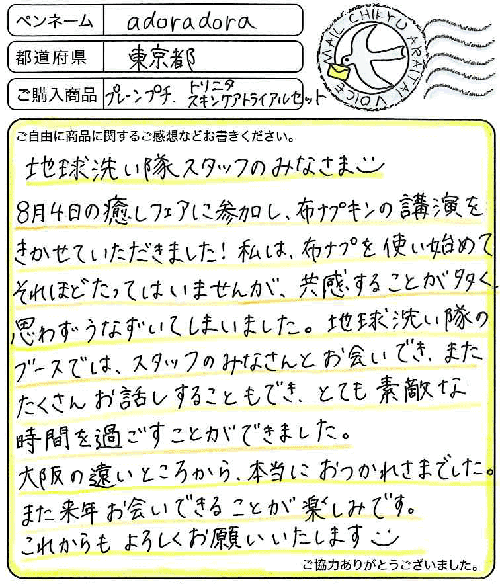 ペンネーム adoradora
都道府県 東京都
ご購入商品 プレーンプチ、トリニタスキンケアトライアルセット
MAIL CHIEYU ARAITAI VOICE
ご自由に商品に関するご感想などお書きください。
地球洗い隊スタッフのみなさま
8月4日の癒しフェアに参加し、布ナプキンの講演を
きかせていただきました！私は、布ナプを使い始めて
それほどたってはいませんが、共感することが多く、
思わずうなずいてしまいました。地球洗い隊の
ブースでは、スタッフのみなさんとお会いでき、また
たくさんお話しすることもでき、とても素敵な
時間を過ごすことができました。
大阪の遠いところから、本当におつかれさまでした。
また来年お会いできることが楽しみです。
これからもよろしくお願いいたします
ご協力ありがとうございました。